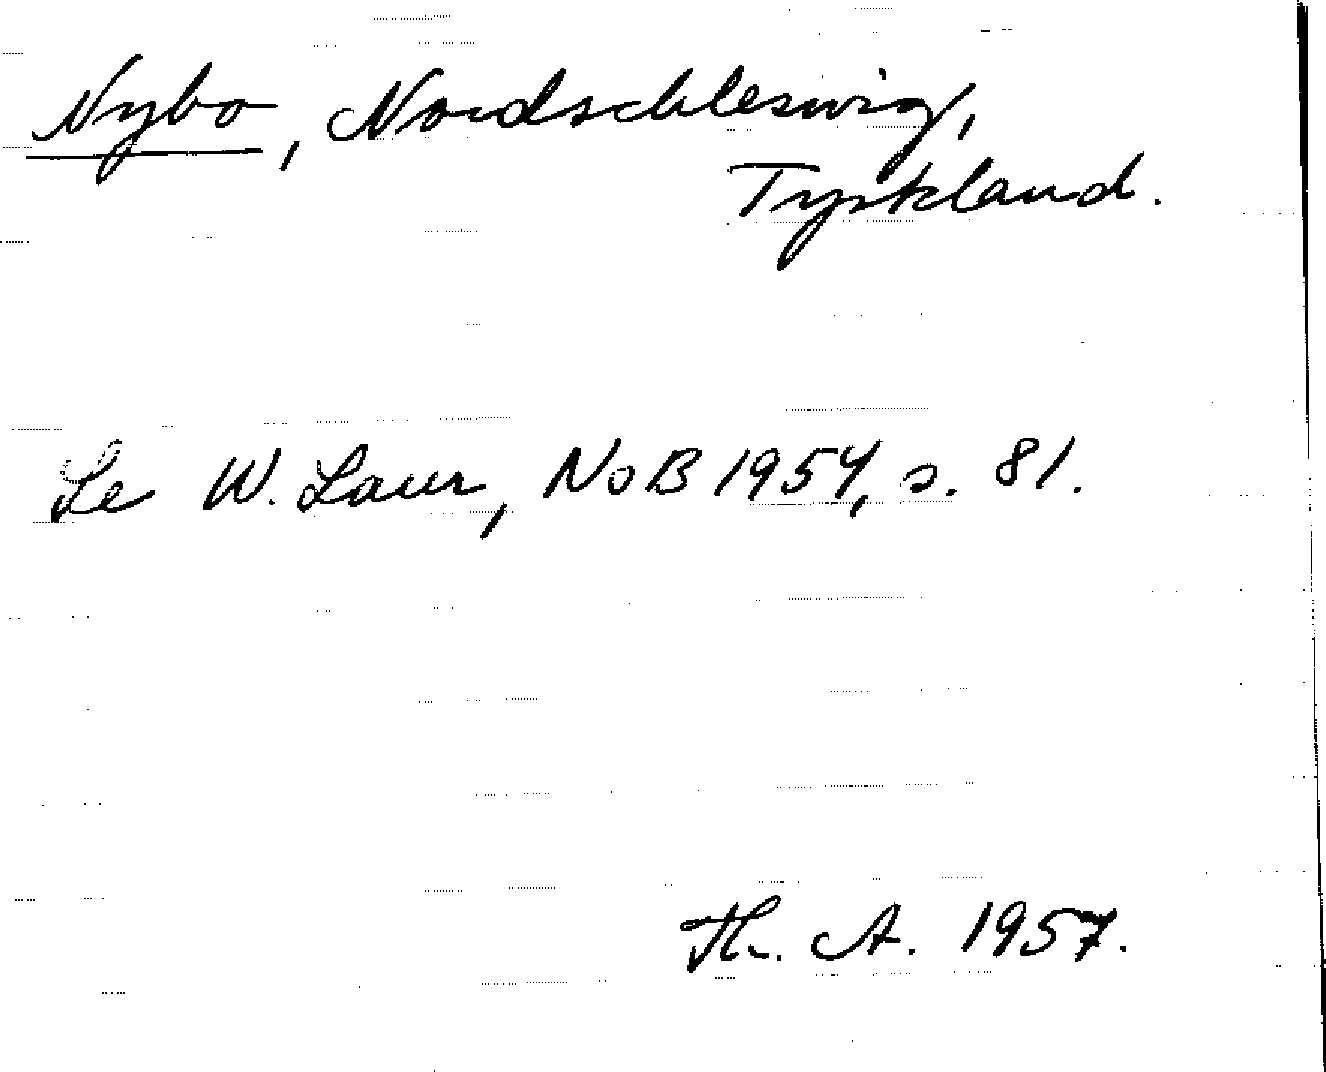 Nybo, Nordschleswig,
Tyskland.
Se W. Laur, NoB 1954, s. 81.
Th. A. 1957.